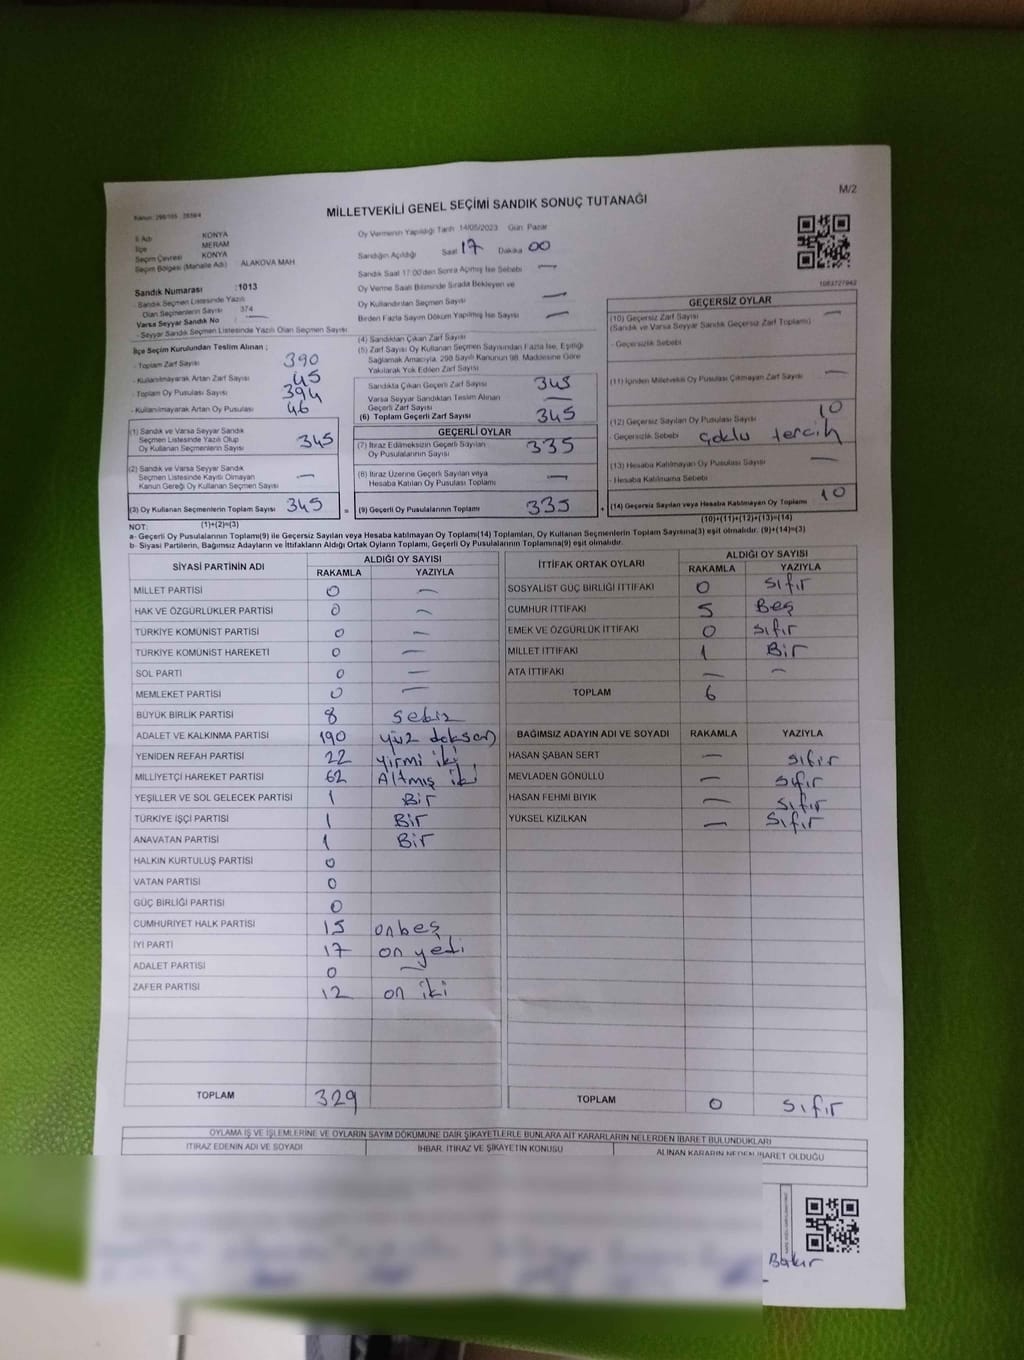 M/2
MİLLETVEKİLİ GENEL SEÇİMİ SANDIK SONUÇ TUTANAĞI
İl Adı KONYA
İlçe MERAM
Seçim Çevresi KONYA
Seçim Bölgesi (Mahalle Adı) ALAKOVA MAH
Sandık Numarası :1013
- Sandık Seçmen Listesinde Yazılı
Olan Seçmenlerin Sayısı 374
Varsa Seyyar Sandık No —
- Seyyar Sandık Seçmen Listesinde Yazılı Olan Seçmen Sayısı
Oy Vermenin Yapıldığı Tarih 14/05/2023 Gün Pazar
Sandığın Açıldığı Saat 17 Dakika 00
Sandık Saat 17:00'den Sonra Açılmış İse Sebebi —
Oy Verme Saati Bitiminde Sırada Bekleyen ve
Oy Kullandırılan Seçmen Sayısı —
Birden Fazla Sayım Döküm Yapılmış İse Sayısı —
İlçe Seçim Kurulundan Teslim Alınan ;
- Toplam Zarf Sayısı 390
- Kullanılmayarak Artan Zarf Sayısı 45
- Toplam Oy Pusulası Sayısı 394
- Kullanılmayarak Artan Oy Pusulası 46
(1) Sandık ve Varsa Seyyar Sandık
Seçmen Listesinde Yazılı Olup
Oy Kullanan Seçmenlerin Sayısı 345
(2) Sandık ve Varsa Seyyar Sandık
Seçmen Listesinde Kayıtlı Olmayan
Kanun Gereği Oy Kullanan Seçmen Sayısı —
(3) Oy Kullanan Seçmenlerin Toplam Sayısı 345
(1)+(2)=(3)
(4) Sandıktan Çıkan Zarf Sayısı
(5) Zarf Sayısı Oy Kullanan Seçmen Sayısından Fazla İse, Eşitliği
Sağlamak Amacıyla, 298 Sayılı Kanunun 98. Maddesine Göre
Yakılarak Yok Edilen Zarf Sayısı
Sandıkta Çıkan Geçerli Zarf Sayısı 345
Varsa Seyyar Sandıktan Teslim Alınan
Geçerli Zarf Sayısı —
(6) Toplam Geçerli Zarf Sayısı 345
GEÇERLİ OYLAR
(7) İtiraz Edilmeksizin Geçerli Sayılan
Oy Pusulalarının Sayısı 335
(8) İtiraz Üzerine Geçerli Sayılan veya
Hesaba Katılan Oy Pusulası Toplamı —
= (9) Geçerli Oy Pusulalarının Toplamı 335
GEÇERSİZ OYLAR
(10) Geçersiz Zarf Sayısı —
(Sandık ve Varsa Seyyar Sandık Geçersiz Zarf Toplamı)
- Geçersizlik Sebebi
(11) İçinden Milletvekili Oy Pusulası Çıkmayan Zarf Sayısı —
(12) Geçersiz Sayılan Oy Pusulası Sayısı 10
- Geçersizlik Sebebi çoklu tercih
(13) Hesaba Katılmayan Oy Pusulası Sayısı —
- Hesaba Katılmama Sebebi
+ (14) Geçersiz Sayılan veya Hesaba Katılmayan Oy Toplamı 10
(10)+(11)+(12)+(13)=(14)
NOT:
a- Geçerli Oy Pusulalarının Toplamı(9) ile Geçersiz Sayılan veya Hesaba katılmayan Oy Toplamı(14) Toplamları, Oy Kullanan Seçmenlerin Toplam Sayısına(3) eşit olmalıdır. (9)+(14)=(3)
b- Siyasi Partilerin, Bağımsız Adayların ve İttifakların Aldığı Ortak Oyların Toplamı, Geçerli Oy Pusulalarının Toplamına(9) eşit olmalıdır.
SİYASİ PARTİNİN ADI ALDIĞI OY SAYISI
RAKAMLA YAZIYLA
MİLLET PARTİSİ 0 —
HAK VE ÖZGÜRLÜKLER PARTİSİ 0 —
TÜRKİYE KOMÜNİST PARTİSİ 0 —
TÜRKİYE KOMÜNİST HAREKETİ 0 —
SOL PARTİ 0 —
MEMLEKET PARTİSİ 0 —
BÜYÜK BİRLİK PARTİSİ 8 sekiz
ADALET VE KALKINMA PARTİSİ 190 yüz doksan
YENİDEN REFAH PARTİSİ 22 yirmi iki
MİLLİYETÇİ HAREKET PARTİSİ 62 Altmış iki
YEŞİLLER VE SOL GELECEK PARTİSİ 1 Bir
TÜRKİYE İŞÇİ PARTİSİ 1 Bir
ANAVATAN PARTİSİ 1 Bir
HALKIN KURTULUŞ PARTİSİ 0
VATAN PARTİSİ 0
GÜÇ BİRLİĞİ PARTİSİ 0
CUMHURİYET HALK PARTİSİ 15 onbeş
İYİ PARTİ 17 on yedi
ADALET PARTİSİ 0 —
ZAFER PARTİSİ 12 on iki
TOPLAM 329
İTTİFAK ORTAK OYLARI ALDIĞI OY SAYISI
RAKAMLA YAZIYLA
SOSYALİST GÜÇ BİRLİĞİ İTTİFAKI 0 sıfır
CUMHUR İTTİFAKI 5 Beş
EMEK VE ÖZGÜRLÜK İTTİFAKI 0 sıfır
MİLLET İTTİFAKI 1 Bir
ATA İTTİFAKI — —
TOPLAM 6
BAĞIMSIZ ADAYIN ADI VE SOYADI RAKAMLA YAZIYLA
HASAN ŞABAN SERT — sıfır
MEVLADEN GÖNÜLLÜ — sıfır
HASAN FEHMİ BIYIK — sıfır
YÜKSEL KIZILKAN — sıfır
TOPLAM 0 sıfır
OYLAMA İŞ VE İŞLEMLERİNE VE OYLARIN SAYIM DÖKÜMÜNE DAİR ŞİKAYETLERLE BUNLARA AİT KARARLARIN NELERDEN İBARET BULUNDUKLARI
İTİRAZ EDENİN ADI VE SOYADI İHBAR, İTİRAZ VE ŞİKAYETİN KONUSU ALINAN KARARIN NEDEN İBARET OLDUĞU
Bakır